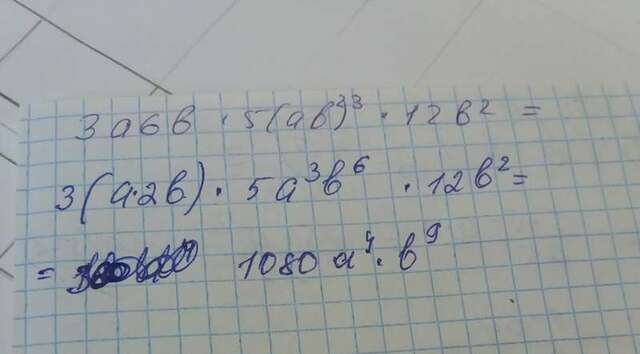 3a6b · 5(ab²)³ · 12b² =
3(a·2b) · 5a³b⁶ · 12b² =
= 1080 a⁴ · b⁹